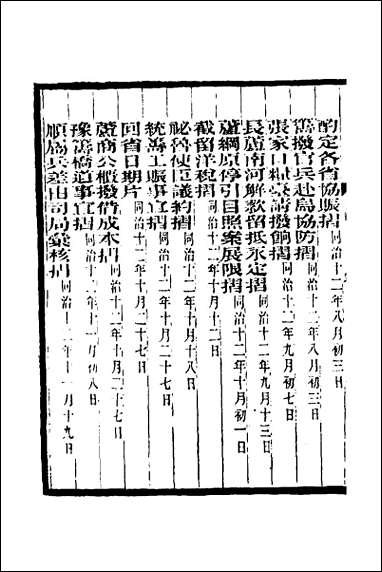 酌定各省協賑摺同治十二年八月初三日
舊撥官兵赴島協防摺同治十二年八月初三日
張家口糧臺請撥餉摺同治十二年九月初七日
長蘆南河解款留抵永定摺同治十二年九月十三日
蘆綱原停引目照案展限摺同治十二年十月初一日
截留洋稅摺同治十二年十月十二日
祕魯使臣議約摺同治十二年十月十八日
統善工賑事宜摺同治十二年十月二十七日
回省日期片同治十二年十月二十七日
蘆商公櫃撥借成本摺同治十二年十月二十七日
豫善橋道事宜摺同治十二年十一月初八日
順屬兵差由司局彙核摺同治十二年十一月十九日